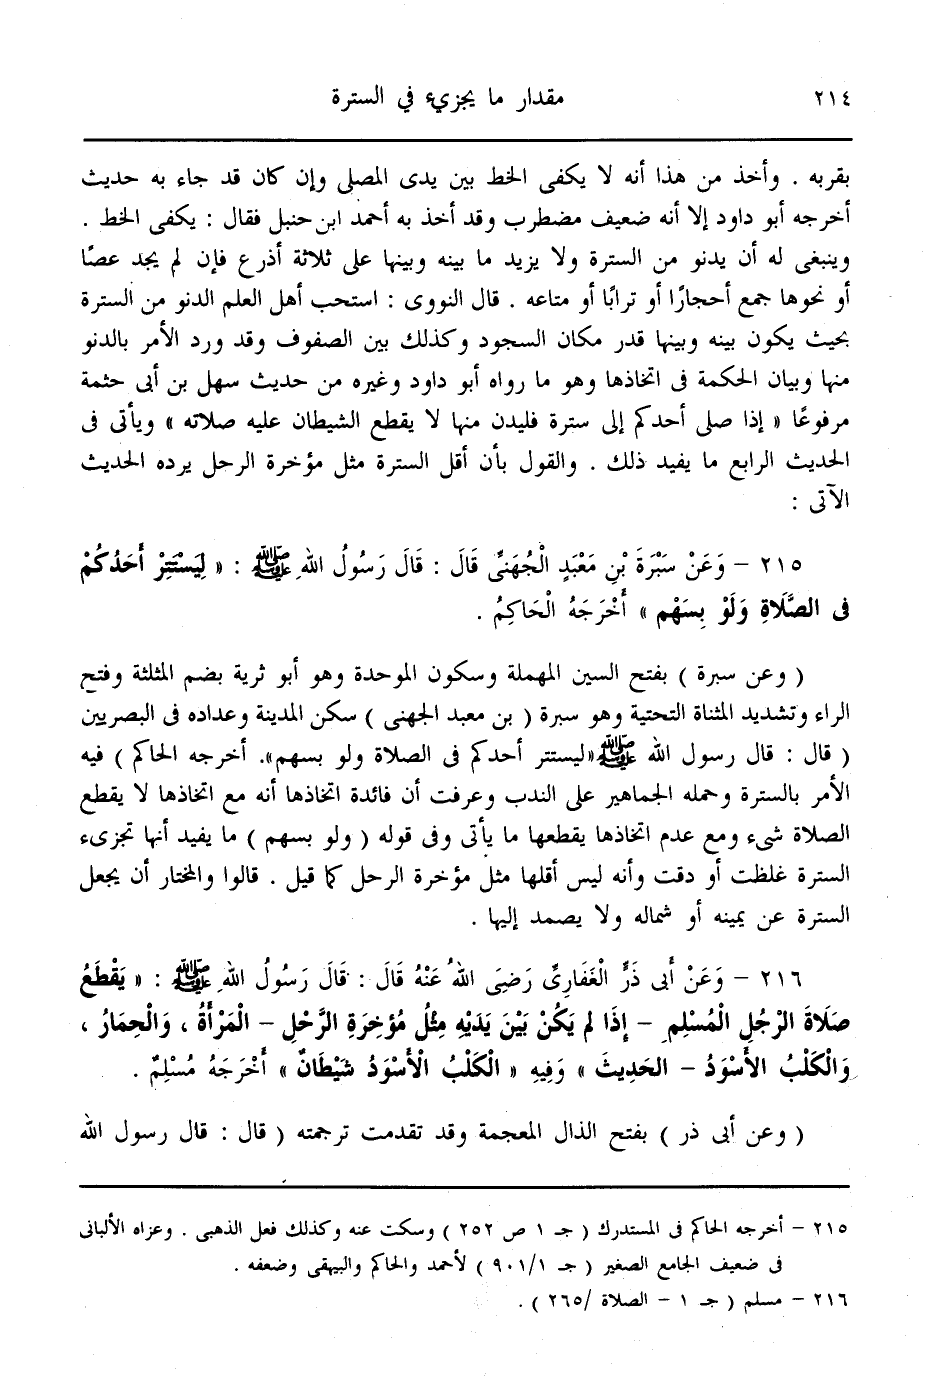 ٢١٤ مقدار ما يجزيء في السترة
بقربه . وأخذ من هذا أنه لا يكفى الخط بين يدى المصلى وإن كان قد جاء به حديث
أخرجه أبو داود إلا أنه ضعيف مضطرب وقد أخذ به أحمد ابن حنبل فقال : يكفى الخط .
وينبغى له أن يدنو من السترة ولا يزيد ما بينه وبينها على ثلاثة أذرع فإن لم يجد عصًا
أو نحوها جمع أحجارًا أو ترابًا أو متاعه . قال النووى : استحب أهل العلم الدنو من السترة
بحيث يكون بينه وبينها قدر مكان السجود وكذلك بين الصفوف وقد ورد الأمر بالدنو
منها وبيان الحكمة فى اتخاذها وهو ما رواه أبو داود وغيره من حديث سهل بن أبى حثمة
مرفوعًا « إذا صلى أحدكم إلى سترة فليدن منها لا يقطع الشيطان عليه صلاته » ويأتى فى
الحديث الرابع ما يفيد ذلك . والقول بأن أقل السترة مثل مؤخرة الرحل يرده الحديث
الآتى :
٢١٥ – وَعَنْ سَبْرَةَ بْنِ مَعْبَدٍ الْجُهَنىِّ قَالَ : قَالَ رَسُولُ اللهِ ﷺ : « لِيَسْتَتِرْ أَحَدُكُمْ
فى الصَّلَاةِ وَلَوْ بِسَهْم » أَخْرَجَهُ الْحَاكِمُ .
( وعن سبرة ) بفتح السين المهملة وسكون الموحدة وهو أبو ثرية بضم المثلثة وفتح
الراء وتشديد المثناة التحتية وهو سبرة ( بن معبد الجهنى ) سكن المدينة وعداده فى البصريين
( قال : قال رسول الله ﷺ «ليستتر أحدكم فى الصلاة ولو بسهم». أخرجه الحاكم ) فيه
الأمر بالسترة وحمله الجماهير على الندب وعرفت أن فائدة اتخاذها أنه مع اتخاذها لا يقطع
الصلاة شىء ومع عدم اتخاذها يقطعها ما يأتى وفى قوله ( ولو بسهم ) ما يفيد أنها تجزىء
السترة غلظت أو دقت وأنه ليس أقلها مثل مؤخرة الرحل كما قيل . قالوا والمختار أن يجعل
السترة عن يمينه أو شماله ولا يصمد إليها .
٢١٦ – وَعَنْ أَبى ذَرٍّ الْغَفَارِىِّ رَضِىَ اللهُ عَنْهُ قَالَ : قَالَ رَسُولُ اللهِ ﷺ : « يَقْطَعُ
صَلَاةَ الرَّجُلِ الْمُسْلِمِ – إِذَا لم يَكُنْ بَيْنَ يَدَيْهِ مِثْلُ مُؤْخِرَةِ الرَّحْلِ – الْمَرْأَةُ ، وَالْحِمَارُ ،
وَالْكَلْبُ الأَسْوَدُ – الحَدِيثَ » وَفِيهِ « الْكَلْبُ الْأَسْوَدُ شَيْطَانٌ » أَخْرَجَهُ مُسْلِمٌ .
( وعن أبى ذر ) بفتح الذال المعجمة وقد تقدمت ترجمته ( قال : قال رسول الله
٢١٥ – أخرجه الحاكم فى المستدرك ( جـ ١ ص ٢٥٢ ) وسكت عنه وكذلك فعل الذهبى . وعزاه الألبانى
فى ضعيف الجامع الصغير ( جـ ٩٠١/١ ) لأحمد والحاكم والبيهقى وضعفه .
٢١٦ – مسلم ( جـ ١ – الصلاة /٢٦٥ ) .